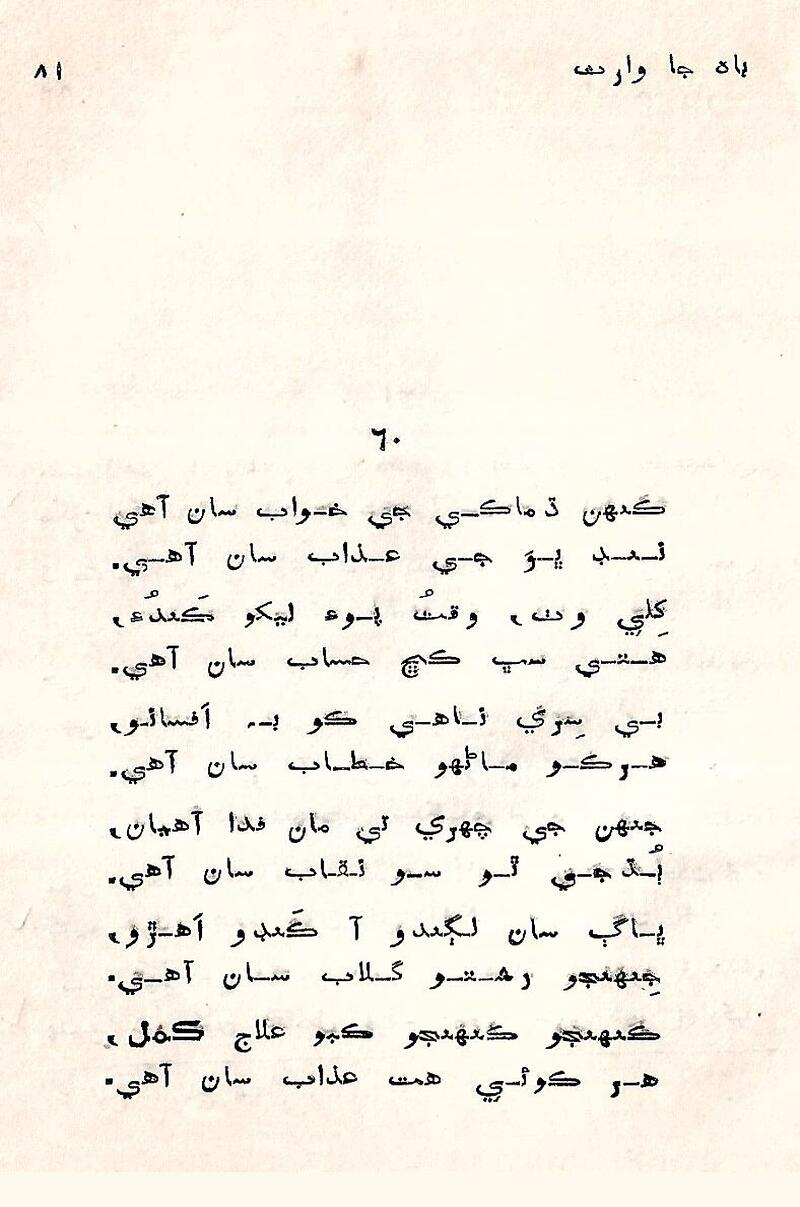 باھ جا وارث ٨١
٦٠
ڪنهن ڌماڪي جي خواب سان آهي
ننڊ ڀؤ جي عذاب سان آهي.
کِلي وٺ، وقتُ پوءِ ليکو ڪَندُءِ،
هتي سڀ ڪجھ حساب سان آهي.
بي سِري ناهي ڪو بہ اَفسانو،
هرڪو ماڻهو خطاب سان آهي.
جنهن جي چهري تي مان فدا آهيان،
ٻُڌجي ٿو سو نقاب سان آهي.
ڀاڳ سان لڳندو آ ڪَنڊو اَهڙو،
جِنهنجو رشتو گلاب سان آهي.
ڪنهنجو ڪنهنجو ڪبو علاج ڪمل،
هر ڪوئي هت عذاب سان آهي.